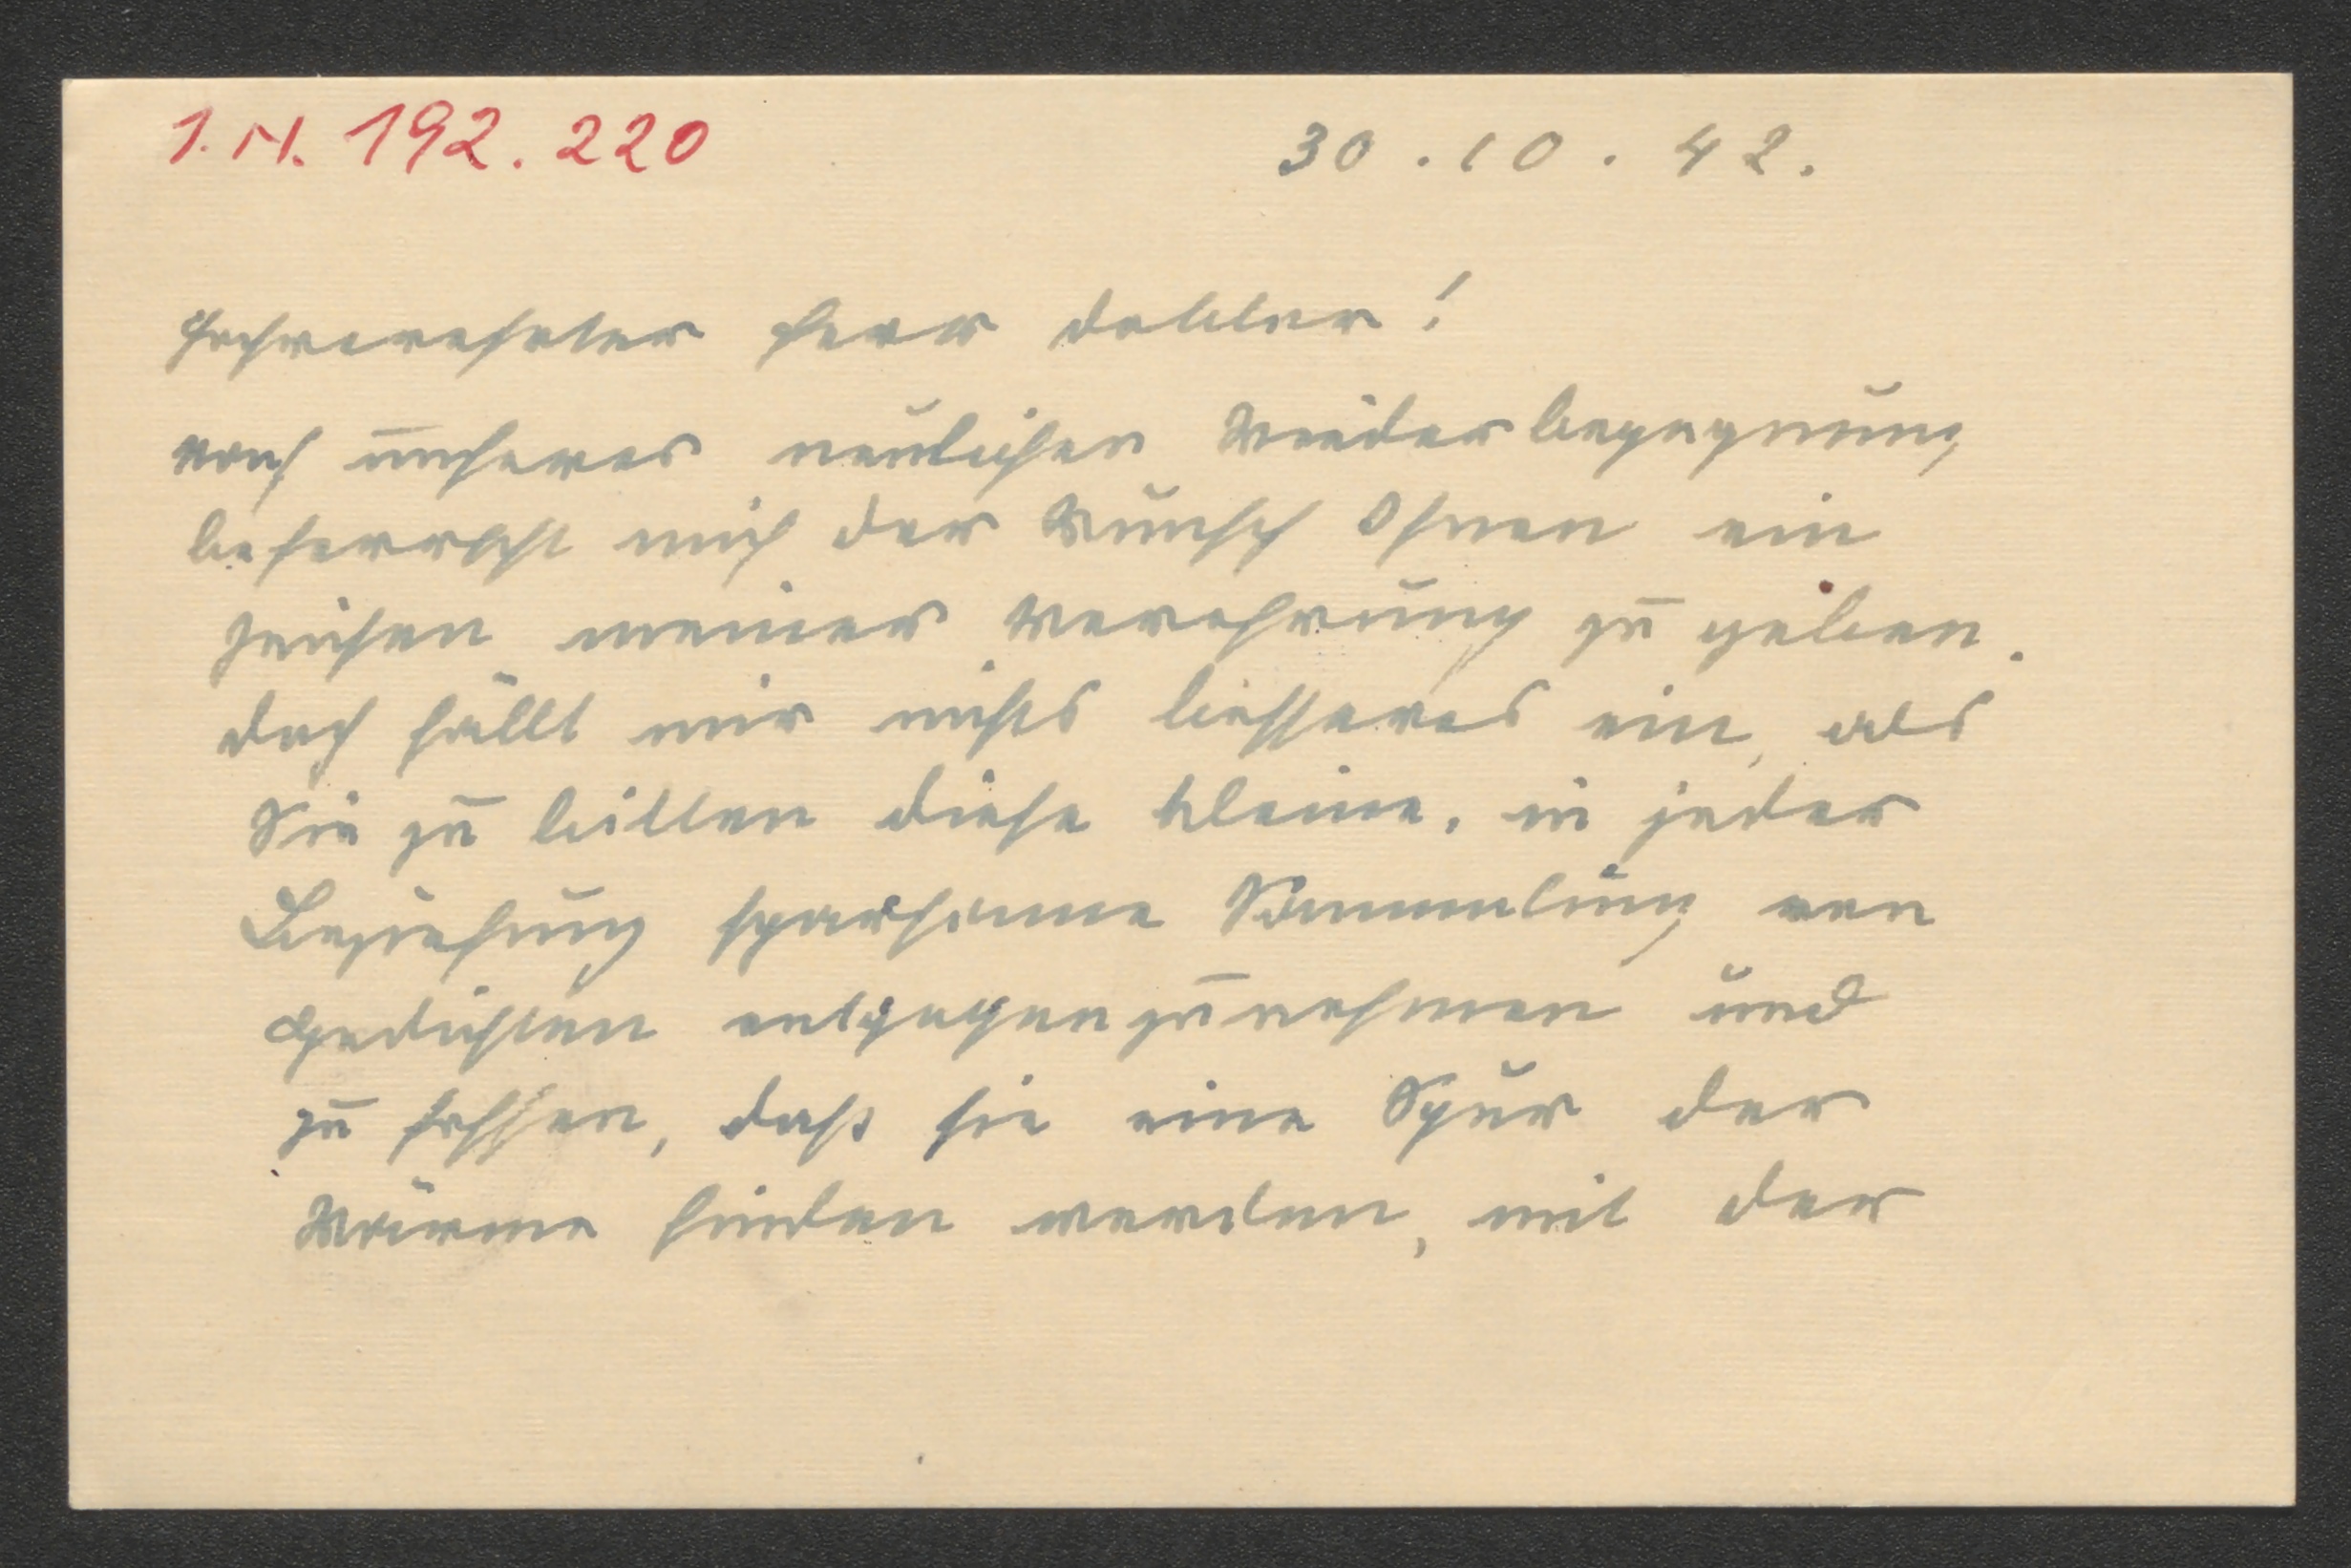 I.N. 192.220
30.10.42.
Hochverehrter Herr Doktor!
nach unserer neulichen Wiederbegegnung
beherrscht mich der Wunsch Ihnen ein
Zeichen meiner Verehrung zu geben.
Doch fällt mir nichts besseres ein, als
Sie zu bitten diese kleine, in jeder
Beziehung sparsame Sammlung von
Gedichten entgegenzunehmen und
zu hoffen, daß sie eine Spur der
Wärme finden werden, mit der